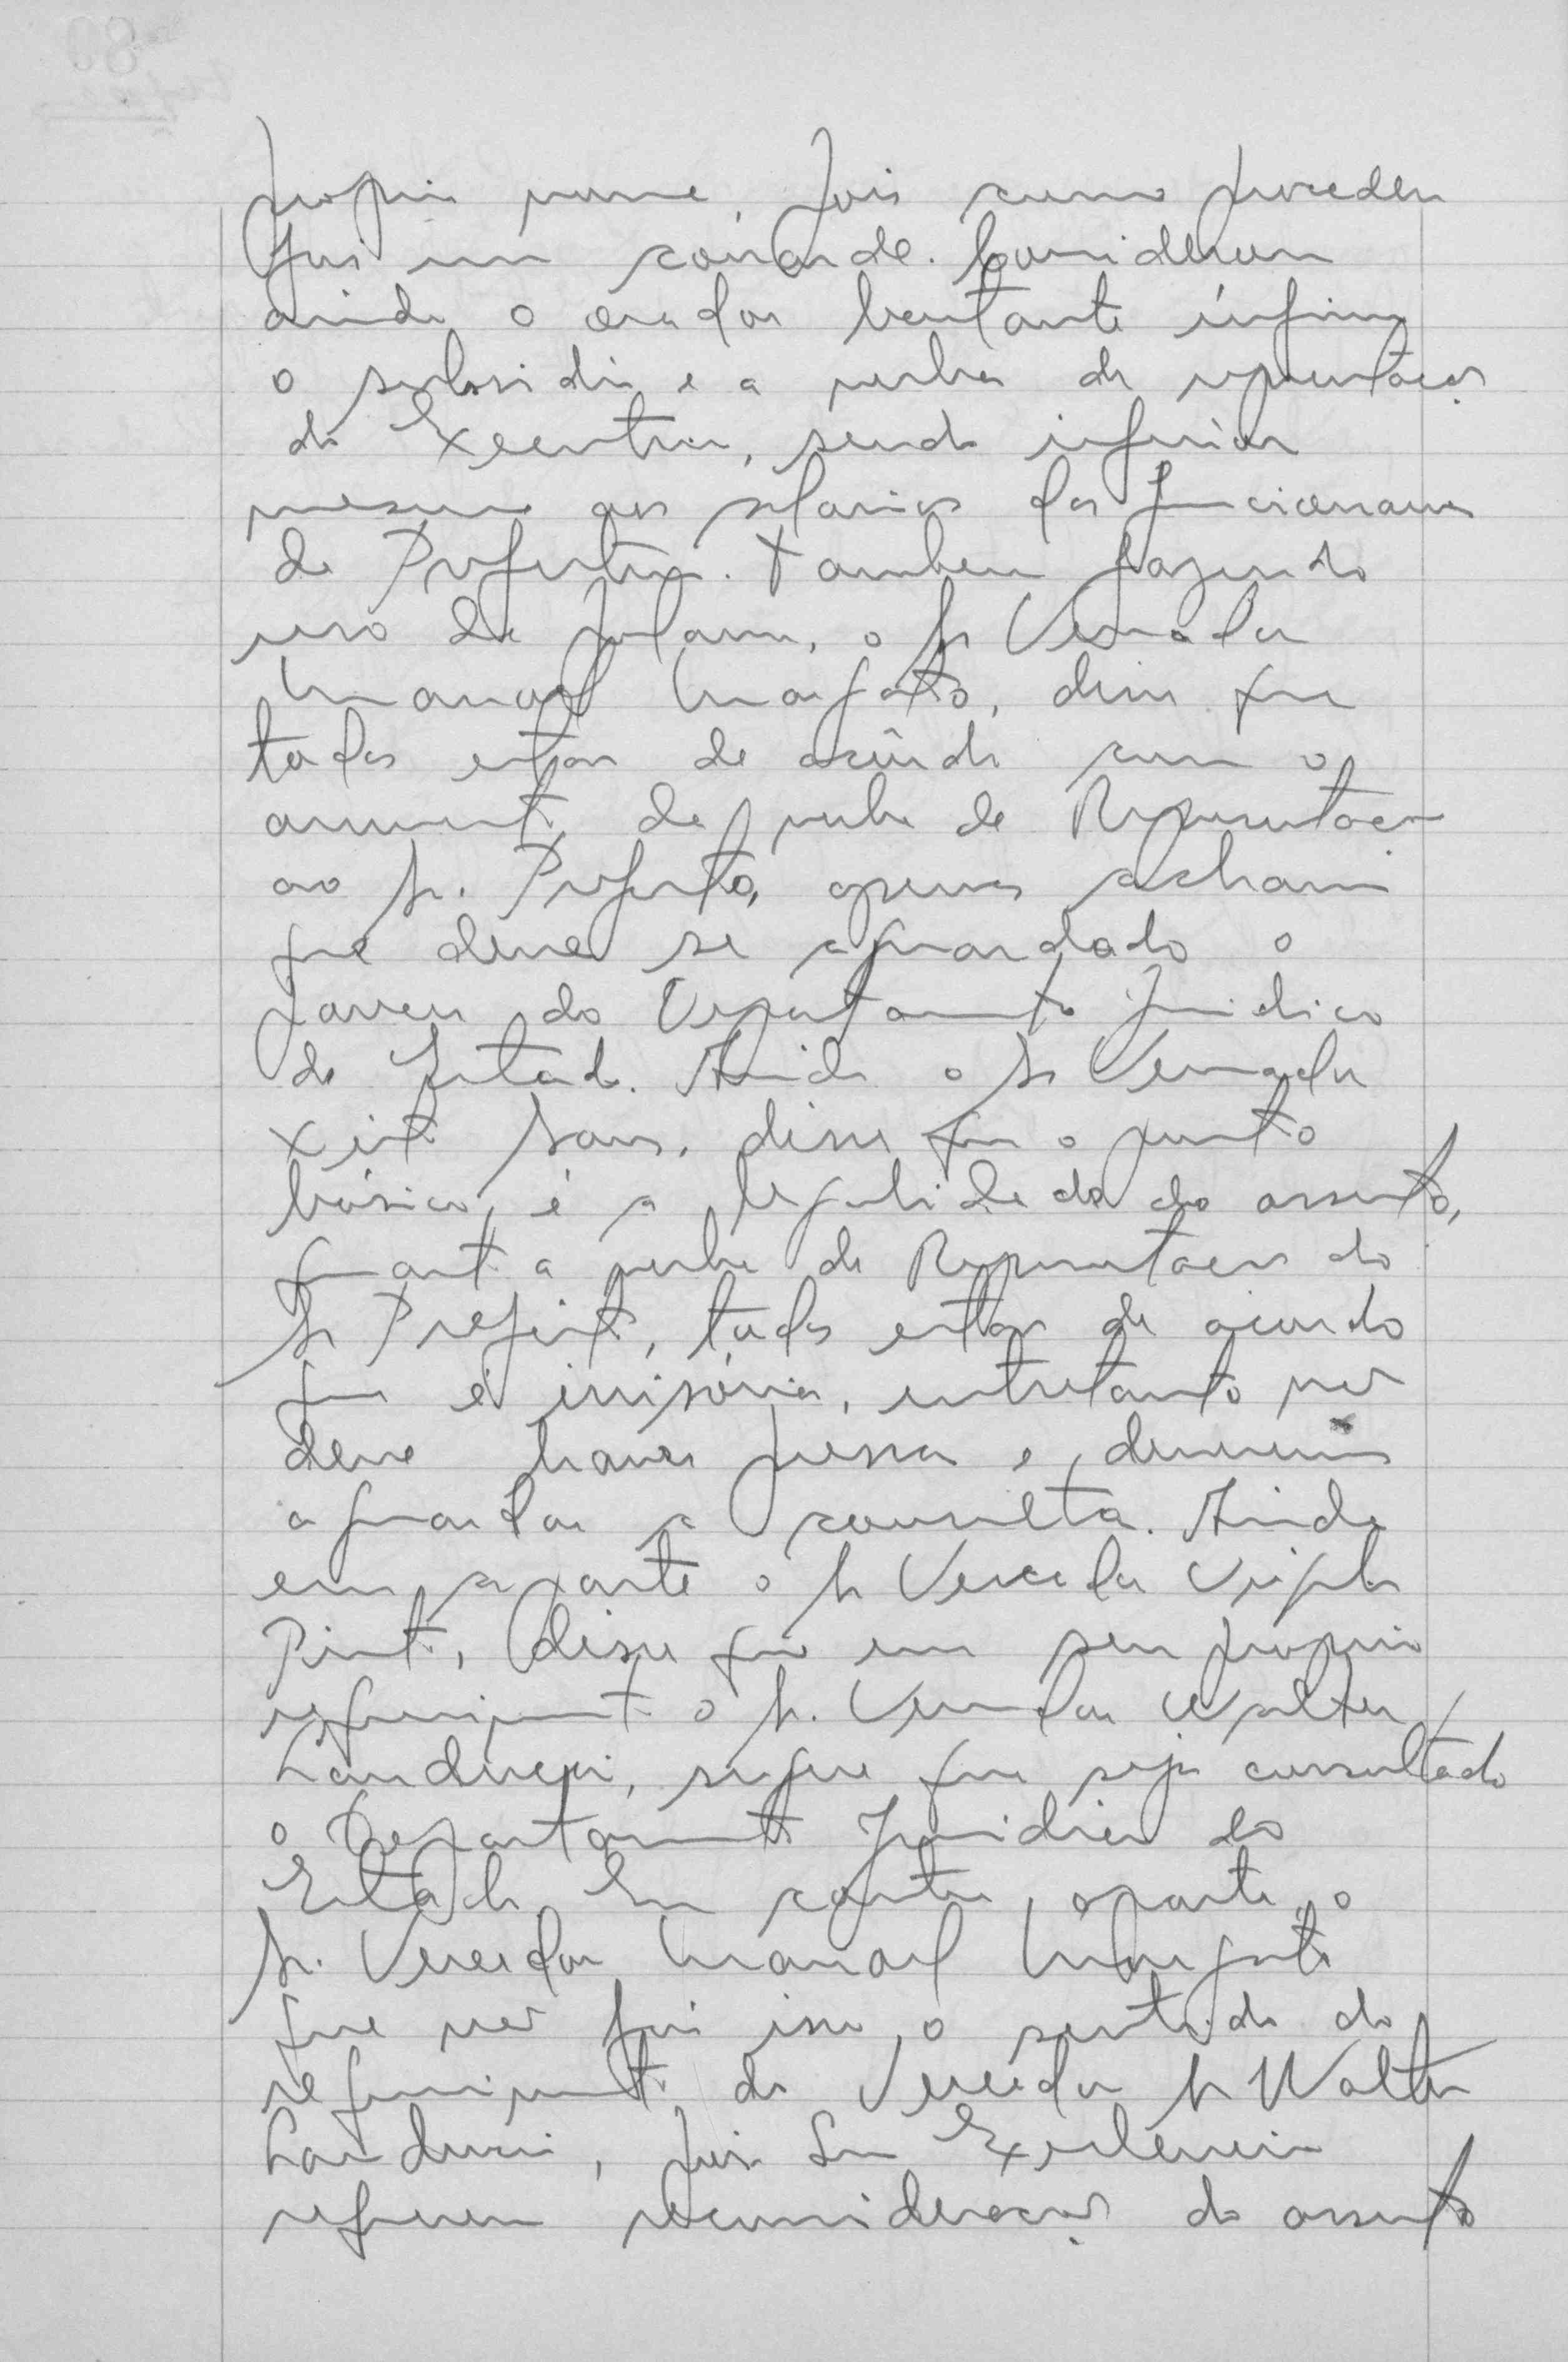 proprio nome, pois como procedeu
foi um covarde. Considerou
ainda o orador bastante infimo
o subsidio e a verba de representação
do Executivo, sendo inferior
mesmo aos salarios dos funcionarios
da Prefeitura. Tambem fazendo
uso da palavra, o Sr Vereador
Manoel Margato, disse que
todos estão de acôrdo com o
aumento da verba de Representação
ao Sr. Prefeito, apenas acham
que deve se aguardado o
parecer do Departamento Juridico
do Estado. Ainda o Sr Vereador
disse que o ponto
básico, é a legalidade do assunto,
quanto a verba de Representação do
Sr Prefeito, todos estão de acordo
que é irrisória, entretanto não
deve haver pressa e, devemos
aguardar a consulta. Ainda
em aparte o Sr Vereador
Pinto, disse que em seu proprio
requerimento o Sr. Vereador Walter
Landucci, sugere que seja consultado
o Departamento Juridico do
Estado. Em contra aparte, o
Sr. Vereador Manoel Margato
que não foi isso, o sentido do
requerimento do Vereador Sr Walter
Landucci, pois Sua Excelencia
requereu reconsideração do assunto